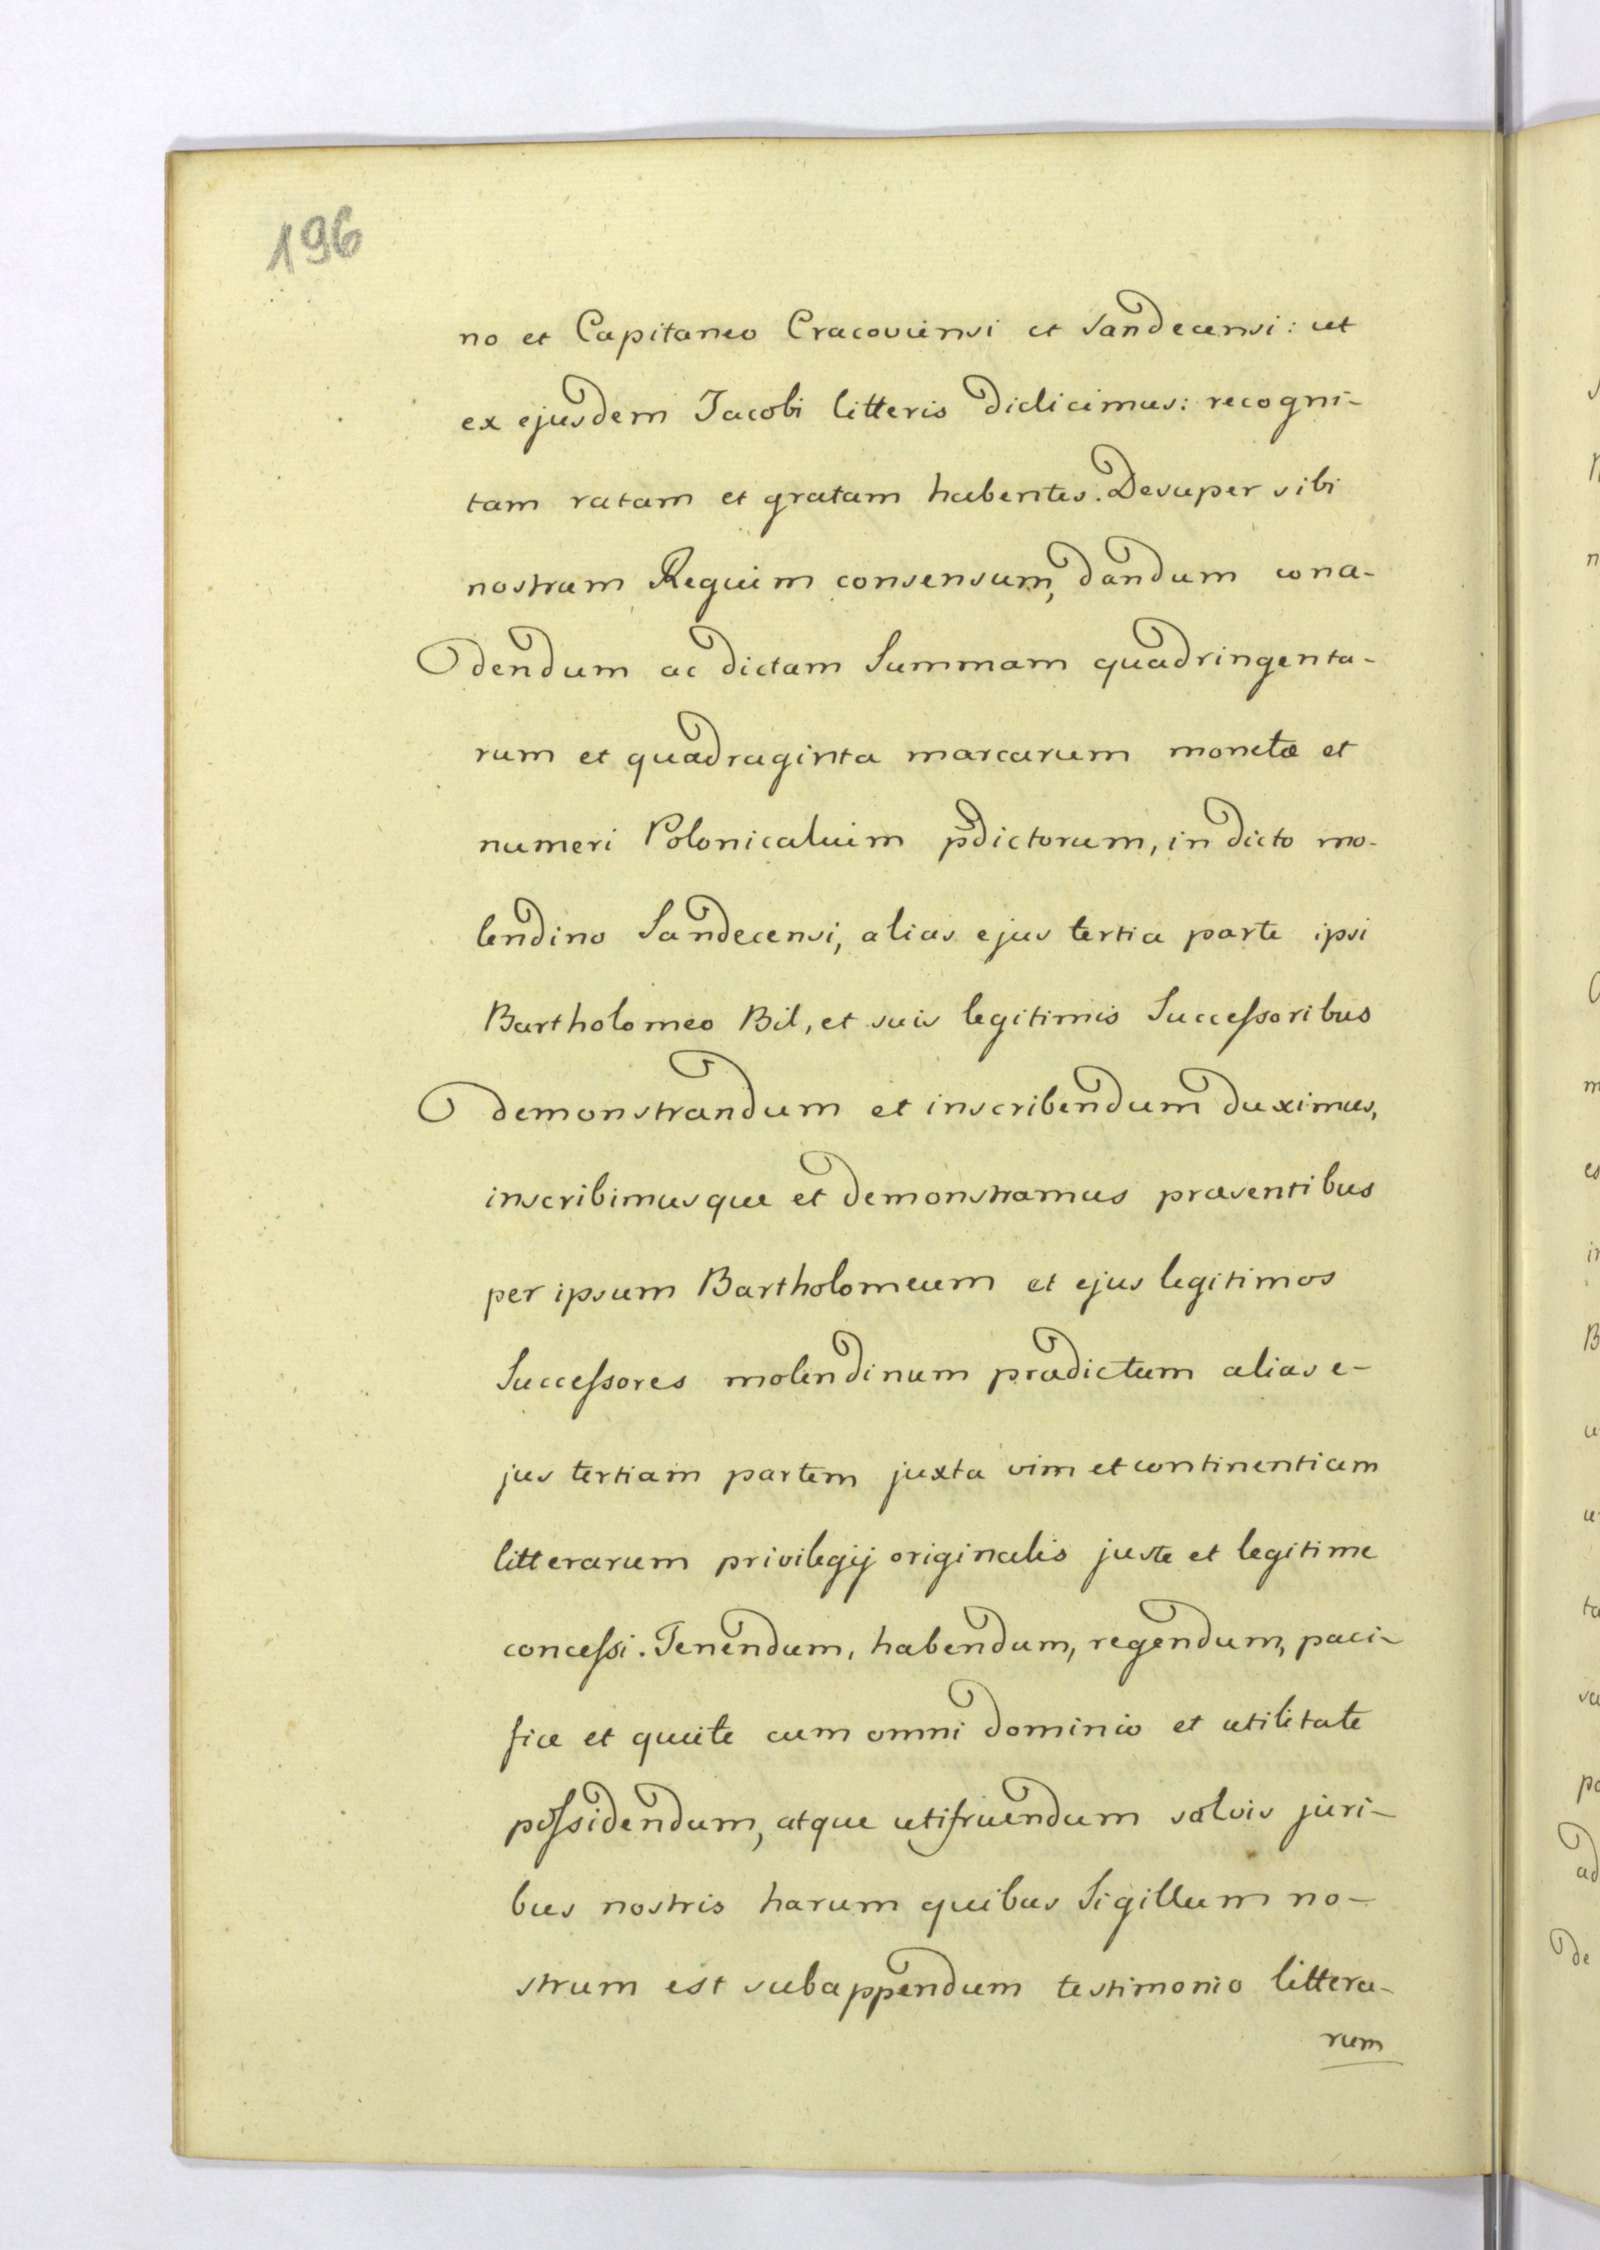 196
no et Capitaneo Cracoviensi et Sandecensi: ut
ex ejusdem Jacobi litteris didicimus: recogni-
tam ratam et gratam habentes. Desuper sibi
nostrum Regium consensum, dandum cona-
dendum ac dictam Summam quadringenta-
rum et quadraginta marcarum monetæ et
numeri Polonicalium pdictorum, in dicto mo-
lendino Sandecensi, alias ejus tertia parte ipsi
Bartholomeo Bil, et suis legitimis Successoribus
demonstrandum et inscribendum duximus,
inscribimusque et demonstramus præsentibus
per ipsum Bartholomeum et ejus legitimos
Successores molendinum prædictum alias e-
jus tertiam partem juxta vim et continentiam
litterarum privilegij originalis juste et legitime
concessi. Tenendum, habendum, regendum, paci-
fice et quiete cum omni dominio et utilitate
possidendum, atque utifruendum salvis juri-
bus nostris harum quibus Sigillum no-
strum est subappendum testimonio littera-
rum